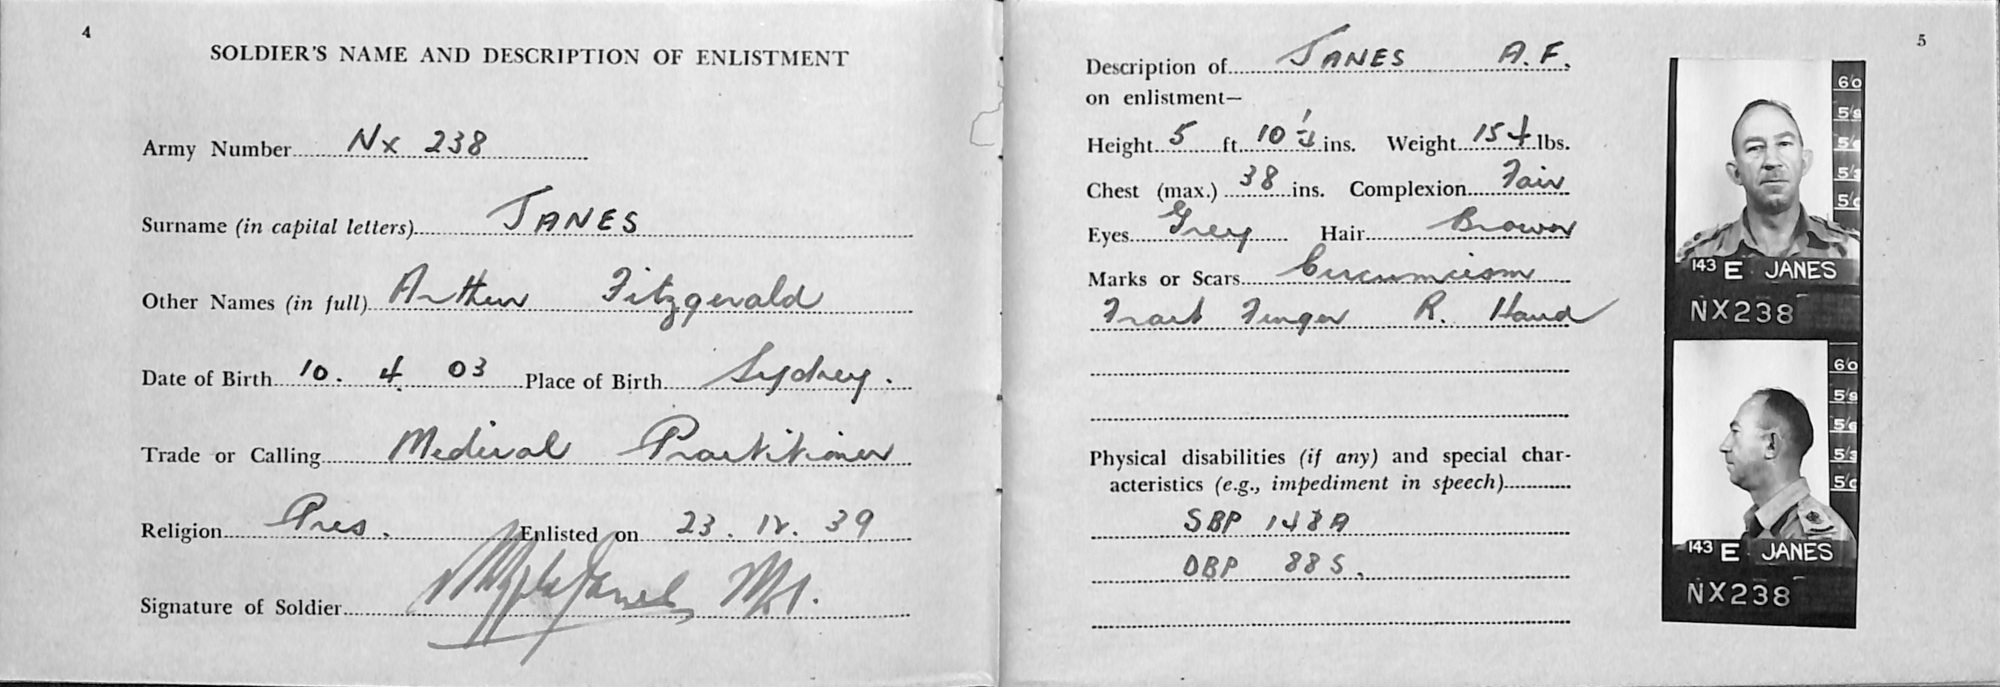 4
SOLDIER'S NAME AND DESCRIPTION OF ENLISTMENT
Army Number NX 238
Surname (in capital letters) JANES
Other Names (in full) Arthur Fitzgerald
Date of Birth 10. 4. 03 Place of Birth Sydney.
Trade or Calling Medical Practitioner
Religion Pres. Enlisted on 23. 12. 39
Signature of Soldier
5
Description of JANES A.F.
on enlistment—
Height 5 ft. 10 ½ ins. Weight 154 lbs.
Chest (max.) 38 ins. Complexion Fair
Eyes Grey Hair Brown
Marks or Scars
Finger R. Hand
Physical disabilities (if any) and special char-
acteristics (e.g., impediment in speech)
SBP 148
DBP 88
6'0
5'9
5'6
5'3
5'0
143 E JANES
NX238
6'0
5'9
5'6
5'3
5'0
143 E JANES
NX238